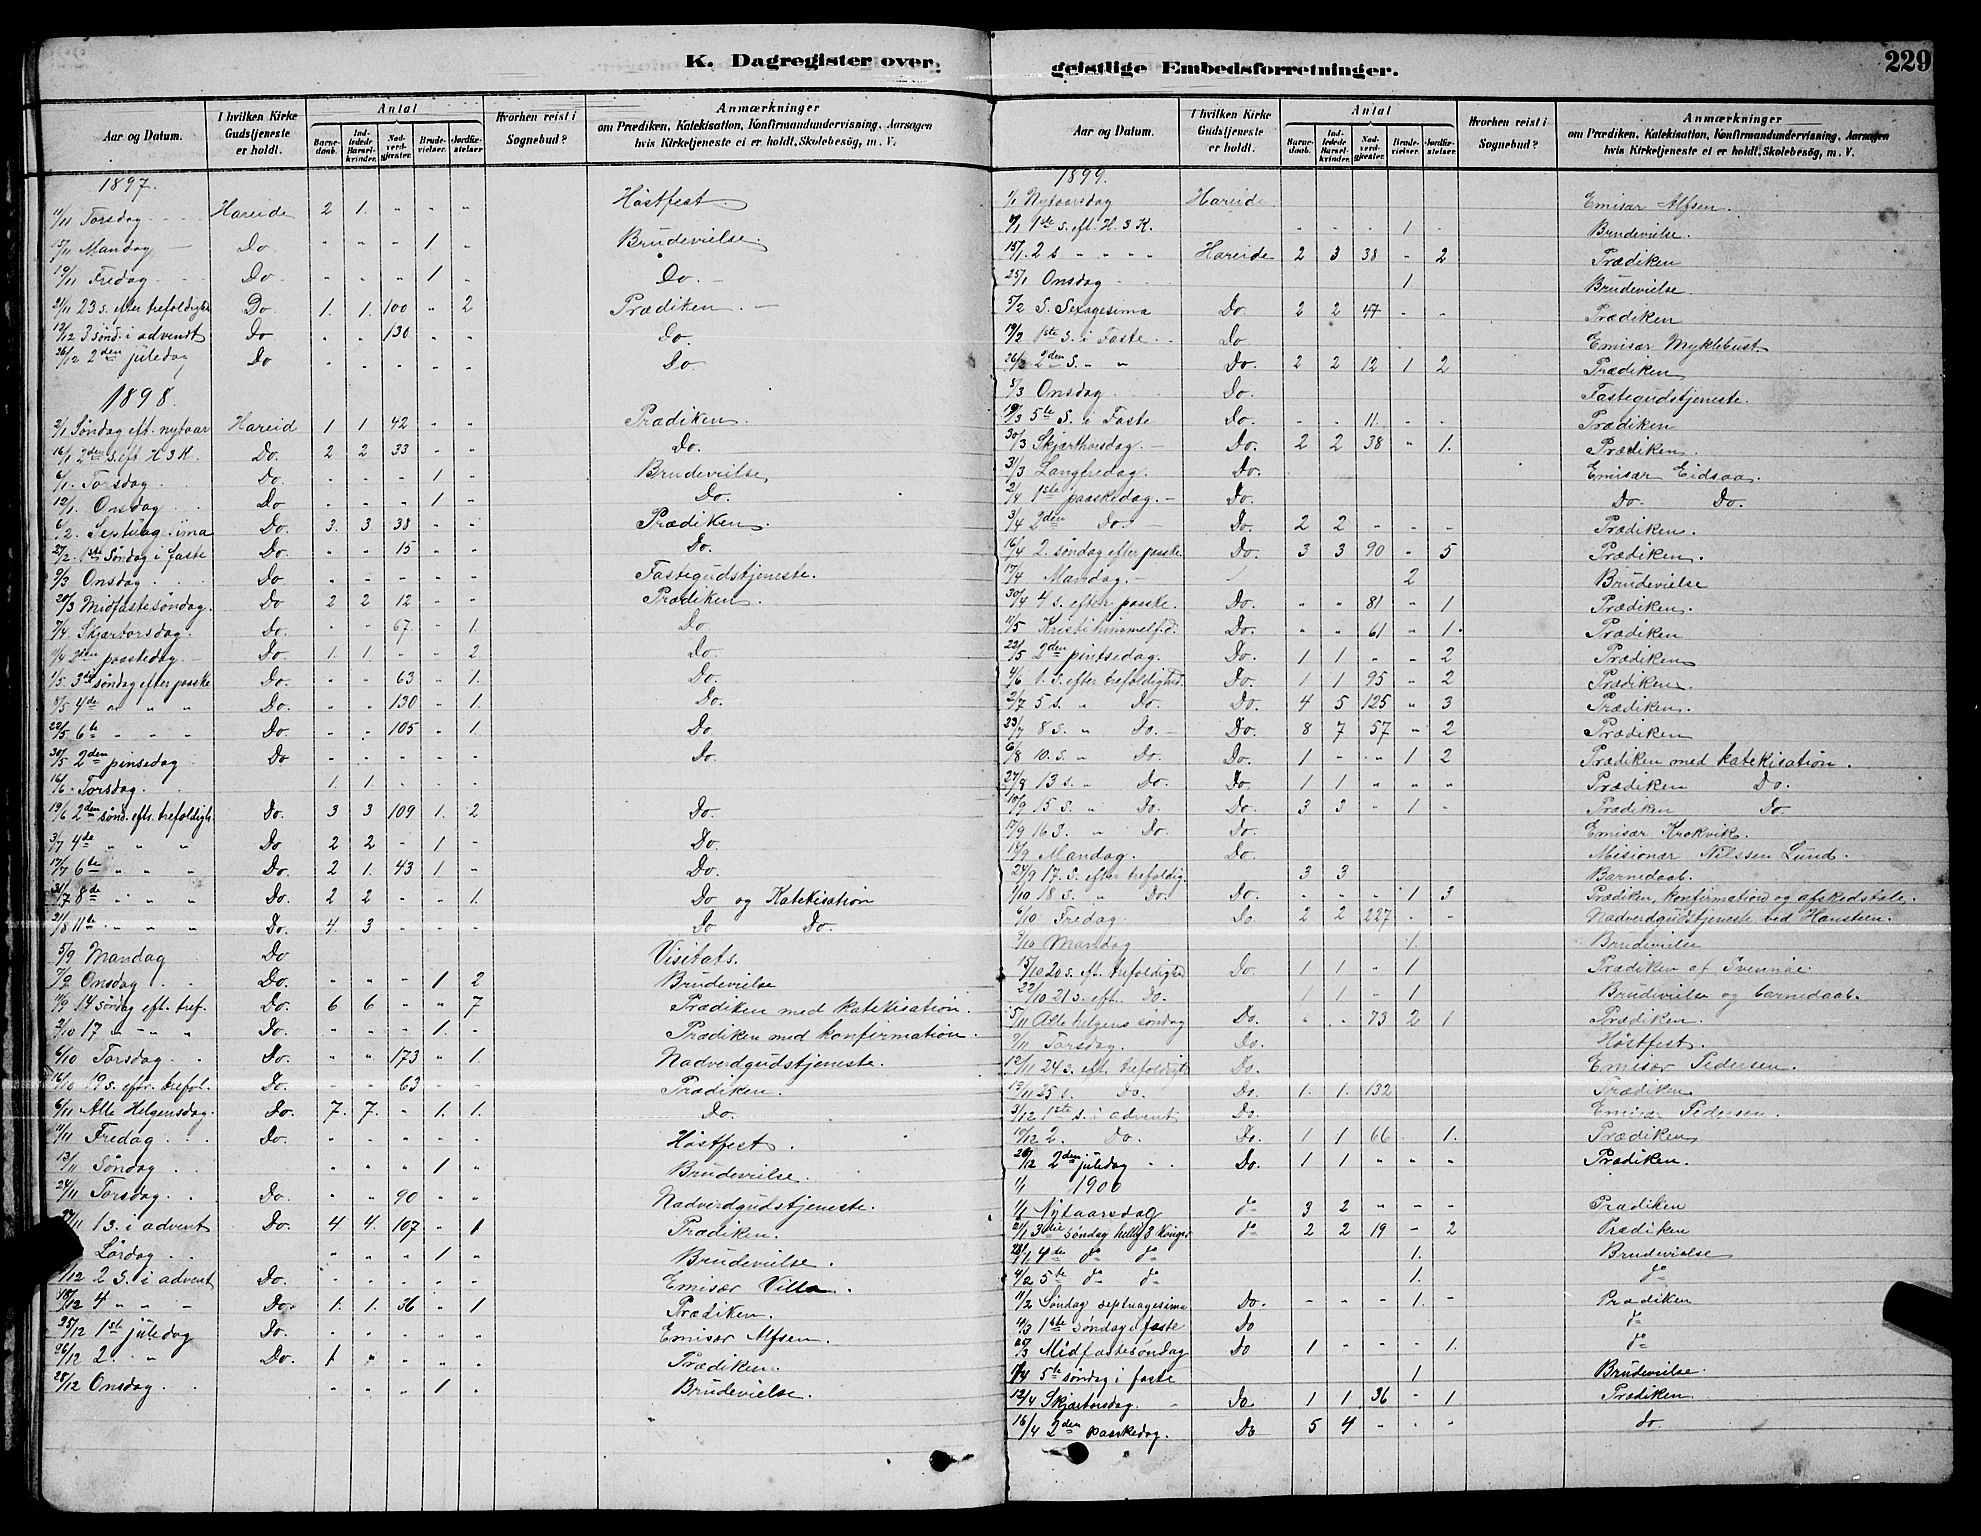 K. Dagregister over
Aar og Datum.
I hvilken Kirke Gudstjeneste er holdt.
Antal
Barnedaab.
Indledede Barselkvinder.
Nadverdgjester.
Brudevielser.
Jordfæstelser.
Hvorhen reist i Sognebud?
Anmærkninger
om Prædiken, Katekisation, Konfirmandundervisning, Aarsagen
hvis Kirketjeneste ei er holdt, Skolebesög, m. V.
1897.
11/11 Torsdag Hareide 2 1. " " " Høstfest
15/11 Mandag Do. " " " 1 " Brudevielse.
19/11 Fredag Do. " " " 1 " Do.
21/11 23 s. efter trefoldigh. Do. 1. 1. 100 " 2 Prædiken.
12/12 3 sønd. i advendt Do " " 130 " " Do.
26/12 2den juledag Do " " " " " Do.
1898.
2/1 Søndag eft. nytaar Hareid 1 1 42 " " Prædiken.
16/1 2den s. eft. H 3 K. Do. 2 2 33 " " Do.
6/1. Torsdag Do. " " " 1 " Brudevielse
12/1. Onsdag Do " " " 1 " Do.
6/2. Septuagesima Do. 3. 3 38 " " Prædiken.
27/2. 1ste Søndag i faste Do " " 15 " " Do.
9/3 Onsdag Do " " " " " Fastegudstjeneste.
20/3 Midfastesøndag. Do 2 2 12 " " Prædiken.
7/4. Skjærtorsdag. Do. " " 67 " 1. Do
11/4 2den paaskedag. Do. 1. 1 " " 2 Do.
1/5. 3die søndag efter paaske Do. " " 63 " 1. Do.
8/5 4de " " " Do. " " 130 " 1. Do.
22/5 6te " " " Do. " " 105 " 1. Do.
30/5 2den pinsedag Do " " " " " Do.
16/6. Torsdag. 1. 1. " " "
19/6 2den sønd. eft. trefoldigh. Do. 3 3 109 1. 2 Do.
3/7 4de " " " Do 2 2 " 1 " Do.
17/7 6te " " " Do. 2 1. 43 1 " Do.
31/7 8de " " " Do. 2 2 " " 1. Do og Katekisation
21/8 11te " " " Do. 4. 3 " " " Do Do.
5/9 Mandag Do Visitats.
7/9 Onsdag Do. " " " 1 2 Brudevielse
11/9 14 søndag eft. tref. Do. 6 6 " " 7 Prædiken med katekisation.
2/10 17 " " " Do. " " " 1. " Prædiken med konfirmation
6/10 Torsdag Do. " " 173 " 1. Nadverdgudstjeneste.
16/10 19 s. eftr. trefol. Do. " " 63 " " Prædiken.
6/11 Alle Helgensdag. Do. 7. 7. " 1. 1. Do.
11/11 Fredag Do. " " " " " Høstfest.
13/11 Søndag " " " 1 " Brudevielse.
24/11 Torsdag. Do. " " 90 " " Nadverdgudstjeneste.
27/11 1 s. i advent Do. 4 4. 107 " 1 Prædiken.
Lørdag " " " 1 " Brudevielse.
/12 2 S. i advent Do. " " " " " Emisær Villa.
18/12 4 " " " Do. 1. 1. 36 " 1 Prædiken.
25/12 1ste juledag Do. " " " " " Emisær Alfsen.
26/12 2. " Do. 1 " " " " Prædiken.
28/12 Onsdag. " " " 1 " Brudevielse.
geistlige Embedsforretninger.
229
Aar og Datum.
I hvilken Kirke Gudstjeneste er holdt.
Antal
Barnedaab.
Indledede Barselkvinder.
Nadverdgjester.
Brudevielser.
Jordfæstelser.
Hvorhen reist i Sognebud?
Anmærkninger
om Prædiken, Katekisation, Konfirmandundervisning, Aarsagen
hvis Kirketjeneste ei er holdt, Skolebesög, m. V.
1899.
1/1 Nytaarsdag Hareide Emisær Alfsen.
1ste s. eft. H. 3 K. " " " 1 " Brudevielse.
15/1. 2 s " " " " Hareide 2 3 38 " 2 Prædiken
25/1 Onsdag 1 Brudevielse.
5/2 S. Sexagesima Do. 2 2 47 " " Prædiken
19/2 1ste s. i Faste Do Emisær Myklebust.
26/2 2den S. " " Do. 2 2 12 1 2 Prædiken
Onsdag Do. Fastegudstjeneste.
19/3 5te S. i Faste Do. " " 11. " " Prædiken
30/3 Skjærthorsdag. Do. 2 2 38 " 1. Prædiken
31/3 Langfredag. Do. Emisær Eidsaa.
2/4 1ste paaskedag. Do. Do Do.
3/4 2den Do. Do. 2 2 " " " Prædiken.
16/4 2. søndag efter paaske. Do. 3 3 90 " 5 Prædiken.
17/4 Mandag. 2 Brudevielse
30/4 4 s. efter paaske. Do. " " 81 " 1 Prædiken.
11/5 Kristi himmelf.d. Do. " " 61 " 1. Prædiken
22/5 2den pintsedag. Do. 1 1 " " 2 Prædiken
4/6 1. s. efter trefoldighed. Do. 1 1 95 " 2 Prædiken.
2/7 5 s. " Do. Do. 4 5 125 " 3 Prædiken.
23/7 8 s. " Do. Do. 8 7 57 " 2 Prædiken
6/8 10. s. " Do. Do. 1 " " 1 2 Prædiken med katekisation.
27/8 13 s. " Do. Do. 1 1 " " " Prædiken Do.
10/9 15 s. " Do. Do. 3 3 " 1 " Prædiken Do
17/9 16 S. " Do. Do. Emisær Krokvik.
18/9 Mandag. Do. Misionær Nilssen Lund.
24/9 17. S. efter trefoldig. 3 3 Barnedaab.
1/10 18 s. " Do. Do. " " " 1 3 Prædiken, konfirmation og afskedstale.
6/10 Fredag. Do. 2 2 227 " " Nadverdgudstjeneste ved Hansteen.
9/10 Mandag 1. Brudevielse
15/10 20 s. eft. trefoldighed Do. 1 1 " 1 Prædiken af
22/10 21 s. eft. Do. 1 1 " 1 Brudevielse og barnedaab.
5/11 Alle helgens søndag Do. " " 73 2 1 Prædiken.
9/11 Torsdag. Do. Høstfest.
12/11 24 s. eft. trefoldigh. Do. Emisær Pedersen.
19/11 25 s. Do. Do. 1. 1. 132 Prædiken
3/12 1ste s. i advent. Do. Emisær Pedersen.
10/12 2. Do. Do. 1 1 66 " 1. Prædiken
26/12 2den juledag Do. 1 1 " " " Prædiken.
1/1 1900
1/1 Nytaarsdag do 3 2 " " " Prædiken
21/1 3die søndag hellig 3 Konger do 2 2 19 " 2 Prædiken
28/1 4de do do 1. Brudevielse
4/2 5te do do 1. do
11/2 Søndag septuagesima Do. " " " 1. " Prædiken
4/3 1ste søndag i faste Do do
25/3 Midfastesøndag Do 1 " " " 1. do
1/4 5te søndag i faste 1 Brudevielse.
12/4 Skjærtorsdag. Do. 1 1 36 " 1 Prædiken
16/4 2den paaskedag. Do 5 4 " " " do.